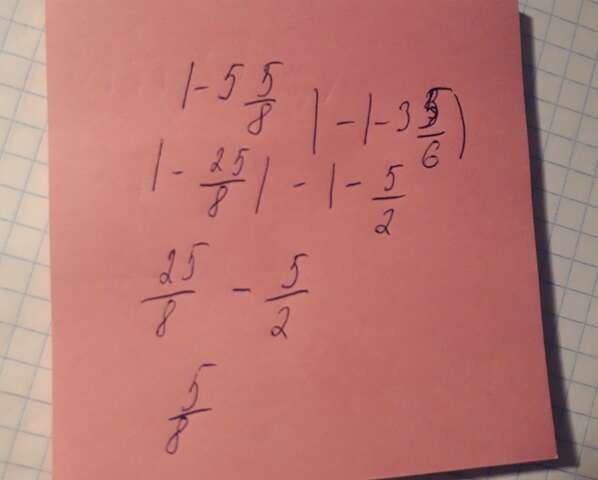 |-5 5/8|-|-3 5/6|
|-25/8|-|-5/2
25/8 - 5/2
5/8